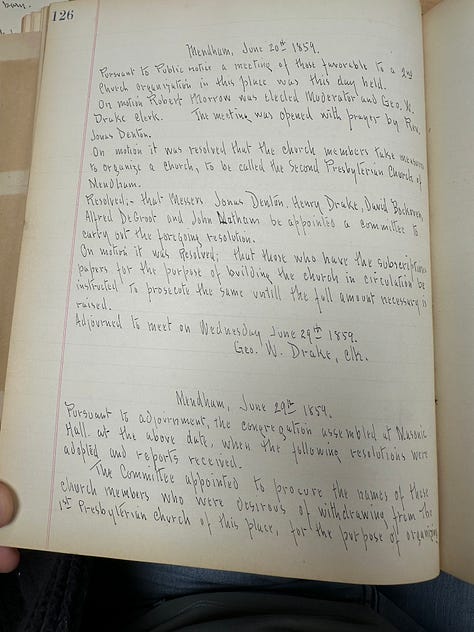 126
Mendham, June 20th 1859.
Pursuant to Public notice a meeting of those favorable to a 2nd
Church organization in this place was this day held.
On motion Robert Morrow was elected Moderator and Geo. W.
Drake Clerk. The meeting was opened with prayer by Rev.
Jonas Denton.
On motion it was resolved that the church members take measures
to organize a church, to be called the Second Presbyterian Church of
Mendham.
Resolved;- that Messers Jonas Denton, Henry Drake, David
Alfred DeGroot and John be appointed a committee to
carry out the foregoing resolution.
On motion it was Resolved; that those who have the subscription
papers for the purpose of building the church in circulation be
instructed to prosecute the same untill the full amount necessary is
raised.
Adjourned to meet on Wednesday June 29th 1859.
Geo. W. Drake, Clk.
Mendham, June 29th 1859.
Pursuant to adjournment, the congregation assembled at Masonic
Hall. at the above date, when the following resolutions were
adopted and reports received.
The Committee appointed to procure the names of those
church members who were desirous of withdrawing from the
1st Presbyterian Church of this place, for the purpose of organizing